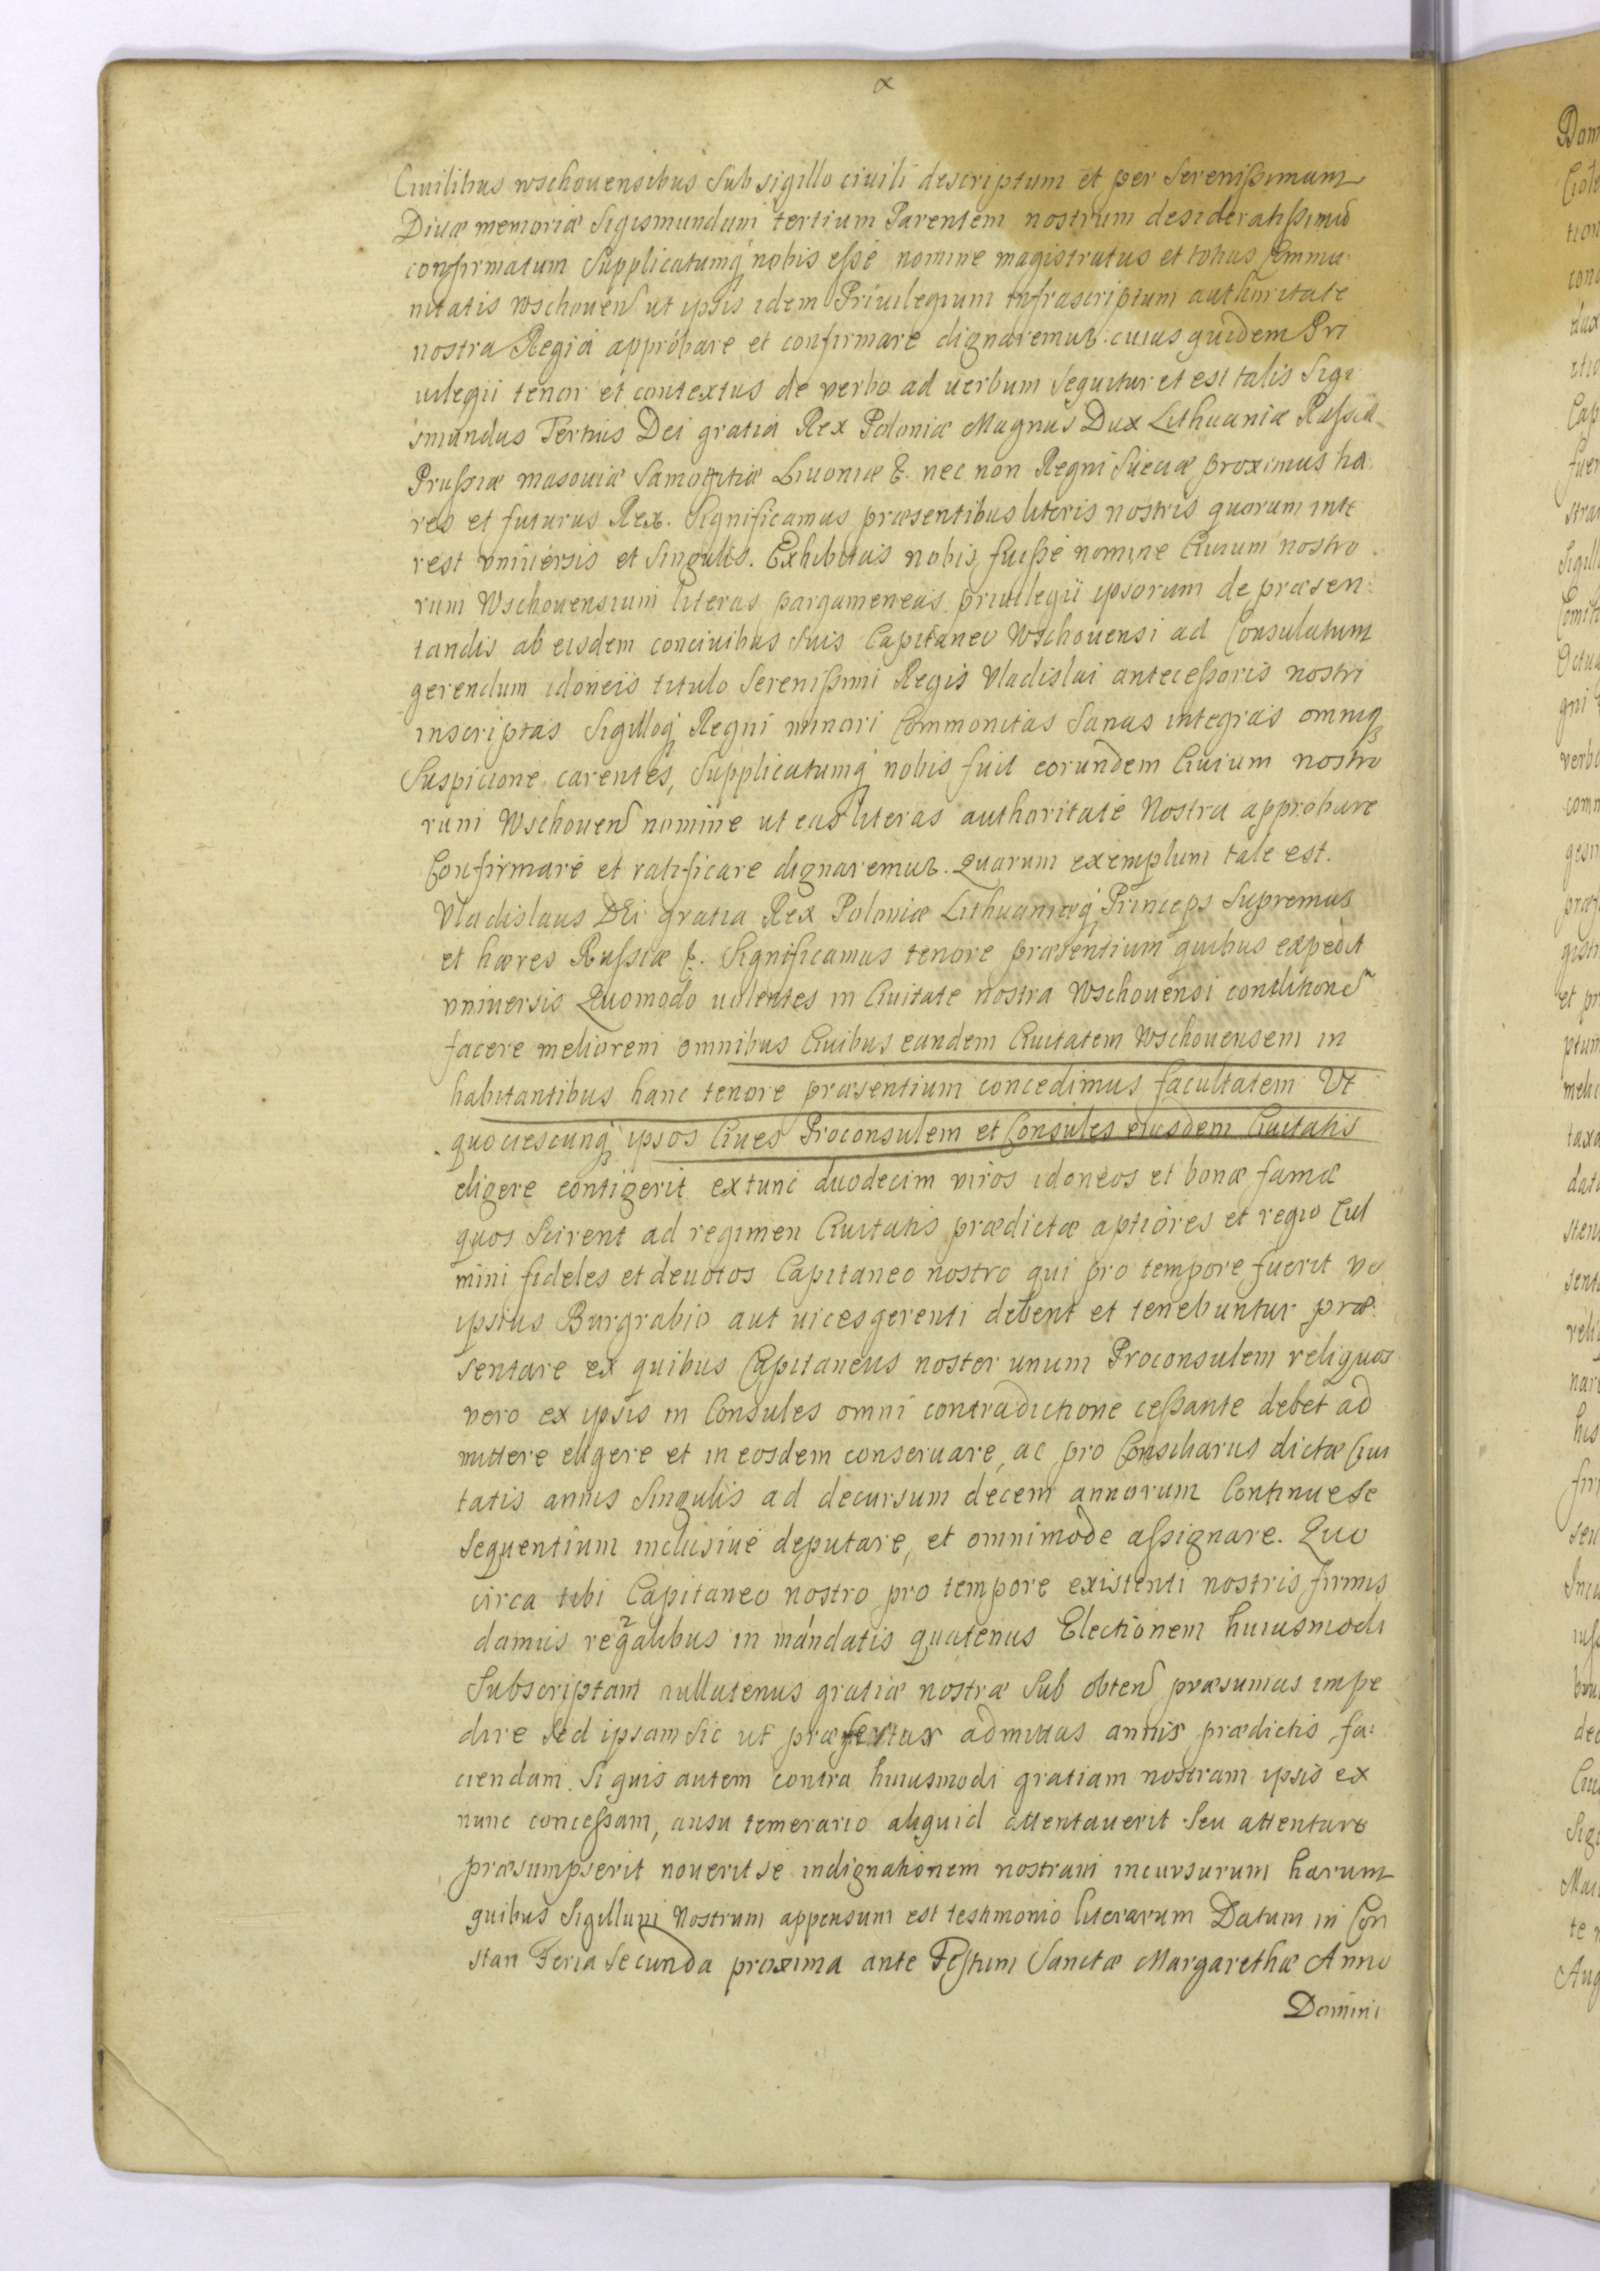 α
Ciuilibus wschouensibus sub sigillo ciuili descriptum et per Serenißimum
Diuæ memoriæ Sigismundum tertium Parentem nostrum desideratißimũ
confirmatum Supplicatumq́ nobis eßé nomine magistratus et totius commu
nitatis wschouen̄ ut ipsis idem Priuilegium infrascriptum authoritate
nostra Regiá appróbare et confirmare dignaremur. cuius quidem Pri
uilegii tenor et contextus de verbo ad uerbum sequitur et est talis Sigi
smundus Tertius Dei gratiá Rex Poloniæ Magnus Dux Lithuaniæ Rußiæ
Prußiæ masouiæ Samogitiæ Liuoniæ &. nec non Regni Sueciæ proximus hæ
res et futurus Rex. Significamus præsentibus literis nostris quorum inte
rest vniuersis et singulis. Exhibitas nobis fuißé nomine Ciuium nostro
rum Wschouensium literas pargameneas priuilegii ipsorum de præsen:
tandis ab eisdem conciuibus suis Capitaneo Wschouensi ad Consulatum
gerendum idoneis titulo Serenißimi Regis Vladislai anteceßoris nostri
inscriptas Sigilloq́ Regni minori Commonitas Sanas integras omniq́
Suspicione carentes, Supplicatumq́ nobis fuit eorundem Ciuium nostro
rum Wschouen̄ nomine ut eas literas authoritaté Nostra approbare
Confirmaré et ratificare dignaremur. Quarum exemplum tale est.
Vladislaus DEi gratia Rex Poloniæ Lithuaniæq́ Princeps Supremus
et hæres Rußiæ &. Significamus tenore præsentium quibus expedit
vniuersis Quomodo uolentes in Ciuitate nostra Wschouensi conditionē
facere meliorem omnibus Ciuibus eandem Ciuitatem Wschouensem in
habitantibus hanc tenore præsentium concedimus facultatem Ut
quociescunq́ ipsos Ciues Proconsulem et Consules eiusdem Ciuitatis
eligere contigerit extunc duodecim viros idoneos et bonæ famæ
quos Scirent ad regimen Ciuitatis prædictæ aptióres et regio Cul
mini fideles et deuotos Capitaneo nostro qui pro tempore fuerit vel
ipsius Burgrabio aut uicesgerenti debent et tenebuntur præ
sentare ex quibus Capitaneus noster unum Proconsulem reliquos
vero ex ipsis in Consules omni contradictione ceßante debet ad
mittere eligere et in eosdem conseruare, ac pro Consiliarus dictæ Ciui
tatis annis singulis ad decursum decem annorum Continue se
sequentium inclusiué deputare, et omnimode aßignare. Quo
circa tibi Capitaneo nostro pro tempore existenti nostris firmis
damus regalibus in mándatis quatenus Electionem huiusmodi
Subscriptam nullatenus gratiæ nostræ Sub obten̄ præsumas impe
dire sed ipsam sic ut præfertur admittas annis prædictis fa:
ciendam. Si quis autem contra huiusmodi gratiam nostram ipsis ex
nunc conceßam, ausu temerario aliquid attentauerit seu attentare
præsumpserit nouerit sé indignationem nostram incursurum harum
quibus Sigillum Nostrum appensum est testimonio literarum Datum in Con
stan Feria Secunda proxima ante Festum Sanctæ Margarethæ Anno
Domini